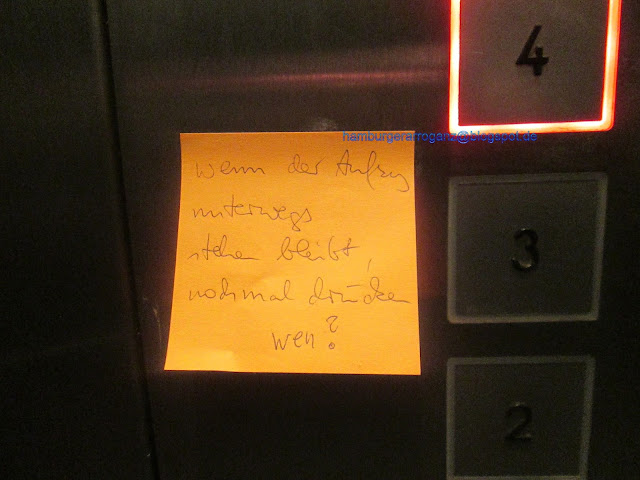 4
hamburgerarroganz@blogspot.de
wenn der Aufzug
unterwegs
stehen bleibt,
nochmal drücken
wen?
3
2